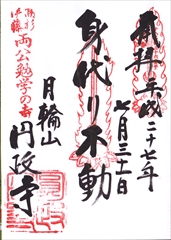 奉拝 平成二十七年
七月三十一日
身代り不動
月輪山
円政寺
高杉
伊藤
両公勉学の寺